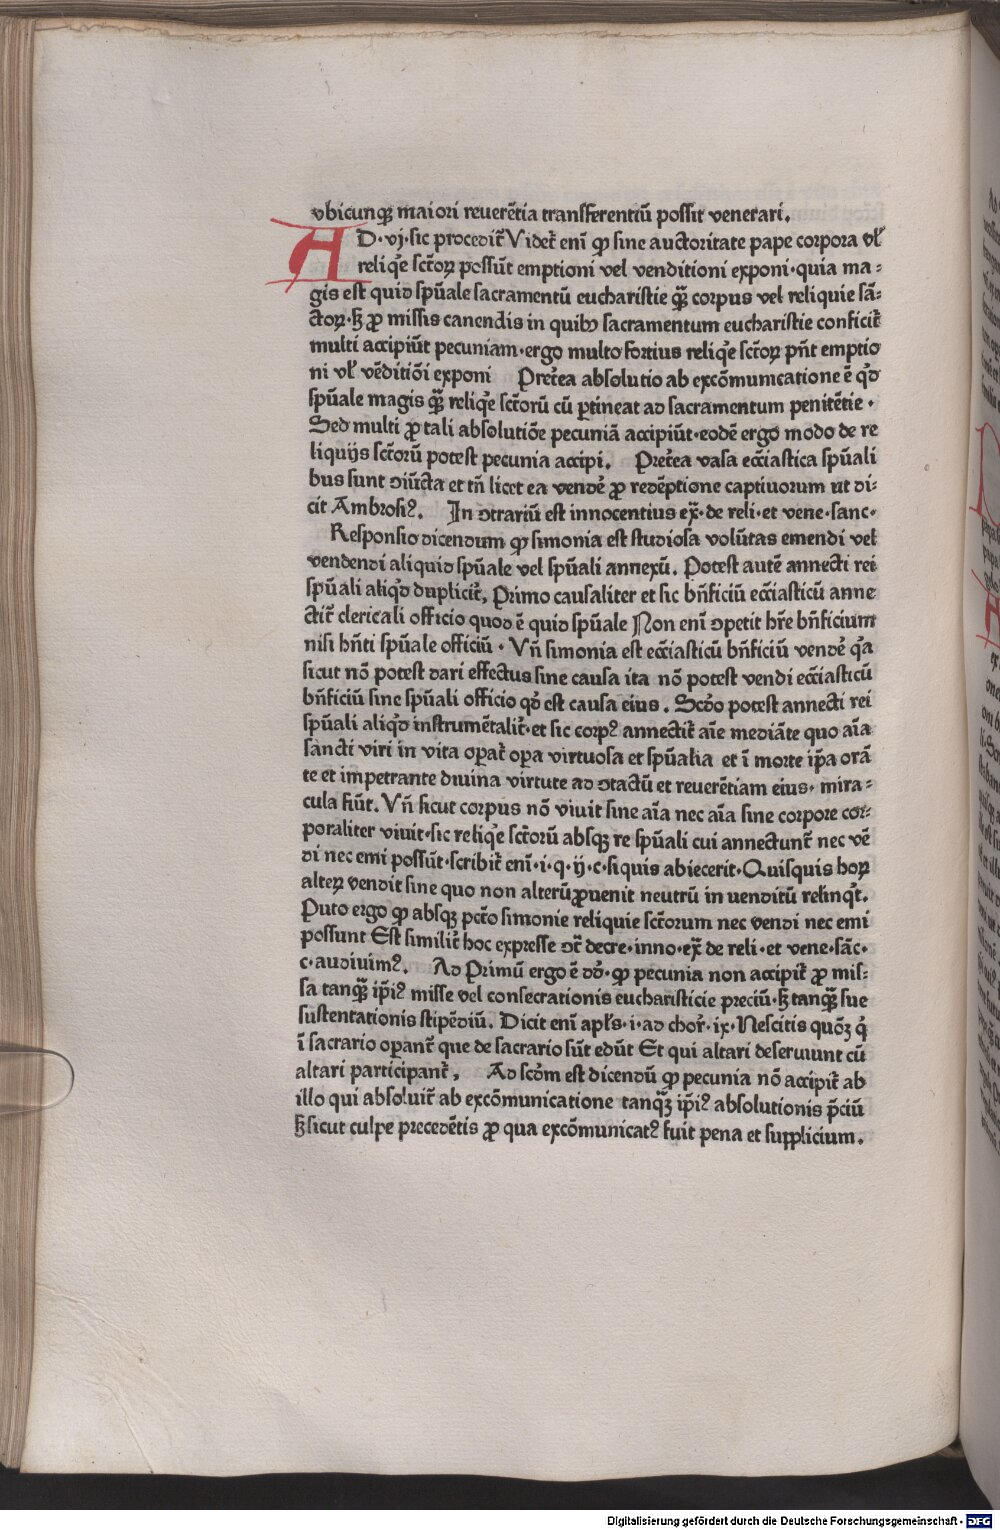 vbicunqꝫ maiori reuerẽtia transferentiũ possit venerari.
AD·vj·sic procedit᷑ Videt᷑ eni᷑ ꝙ sine auctoritate pape corpora vl̕
reliq̕e sct̃oꝝ possũt emptioni vel venditioni exponi·quia ma⸗
gis est quid spũale sacramentũ eucharistie qꝫ̃ corpus vel reliquie sã⸗
ctoꝝ·sꝫ ꝓ missis canendis in quibꝰ sacramentum eucharistie conficit᷑
multi accipiũt pecuniam·ergo multo fortius reliq̕e sct̃oꝝ pñt emptio
ni vl̕ vẽditiõi exponi Preterea absolutio ab excõmunicatione ẽ q̕d
spũale magis qꝫ̃ reliq̕e sct̃orũ cũ ꝑtineat ad sacramentum penitẽtie·
Sed multi ꝓ tali absolutiõe pecuniã accipiũt·eodẽ ergo modo de re
liquijs sct̃orũ potest pecunia accipi. Pret̃ea vasa ecc̃iastica spũali
bus sunt ↄiũcta et tñ licet ea vendẽ ꝓ redẽptione captiuorum ut di⸗
cit Ambrosiꝰ. In ↄtrariũ est innocentius ex̃·de reli·et vene·sanc·
Responsio dicendum ꝙ simonia est studiosa volũtas emendi vel
vendendi aliquid spũale vel spũali annexũ. Potest autẽ annecti rei
spũali aliq̕d duplicit᷑, Primo causaliter et sic bñficiũ ecc̃iasticũ anne
ctit᷑ clericali officio quod ẽ quid spũale Non eni᷑ ↄpetit hr̃e bñficium
nisi hñti spũale officiũ· Vñ simonia est ecc̃iasticũ bñficiũ vendẽ q̕a
sicut nõ potest dari effectus sine causa ita nõ potest vendi ecc̃iasticũ
bñficiũ sine spũali officio qd̕ est causa eius. Scd̕o potest annecti rei
spũali aliq̕d instrumẽtalit᷑·et sic corpꝰ annectit᷑ aĩe mediãte quo aĩa
sancti viri in vita oꝑat᷑ oꝑa virtuosa et spũalia et ĩ morte ip̃a orã
te et impetrante diuina virtute ad ↄtactũ et reuerẽtiam eius· mira⸗
cula fiũt. Vñ sicut corpus nõ viuit sine aĩa nec aĩa sine corpore cor⸗
poraliter viuit·sic reliq̕e sct̃orũ absqꝫ re spũali cui annectunt᷑ nec vẽ
di nec emi possũt·scribit᷑ eni᷑·i·q·ij·c·siquis abiecerit·Quisquis hoꝝ
alteꝝ vendit sine quo non alterũ ꝓuenit neutrũ in uenditũ relinq̕t.
Puto ergo ꝙ absqꝫ pcc̃to simonie reliquie sct̃orum nec vendi nec emi
possunt Est similit᷑ hoc expresse ↄt᷑ decre·inno·ex̃ de reli·et vene·sãc·
c·audiuimꝰ. Ad Primũ ergo ẽ dd̕·ꝙ pecunia non accipit᷑ ꝓ mis⸗
sa tanqꝫ̃ ip̃iꝰ misse vel consecrationis eucharisticie preciũ·sꝫ tanqꝫ̃ sue
sustentationis stipẽdiũ. Dicit eni᷑ apl̃s·i·ad chor̃·ix·Nescitis quõꝫ q̕
ĩ sacrario oꝑant᷑ que de sacrario sũt edũt Et qui altari deseruiunt cũ
altari participant᷑, Ad scd̃m est dicendũ ꝙ pecunia nõ accipit᷑ ab
illo qui absoluit᷑ ab excõmunicatione tanqꝫ̃ ip̃iꝰ absolutionis p̃ciũ
sꝫ sicut culpe precedẽtis ꝓ qua excõmunicatꝰ fuit pena et supplicium.
Digitalisierung gefördert durch die Deutsche Forschungsgemeinschaft - DFG